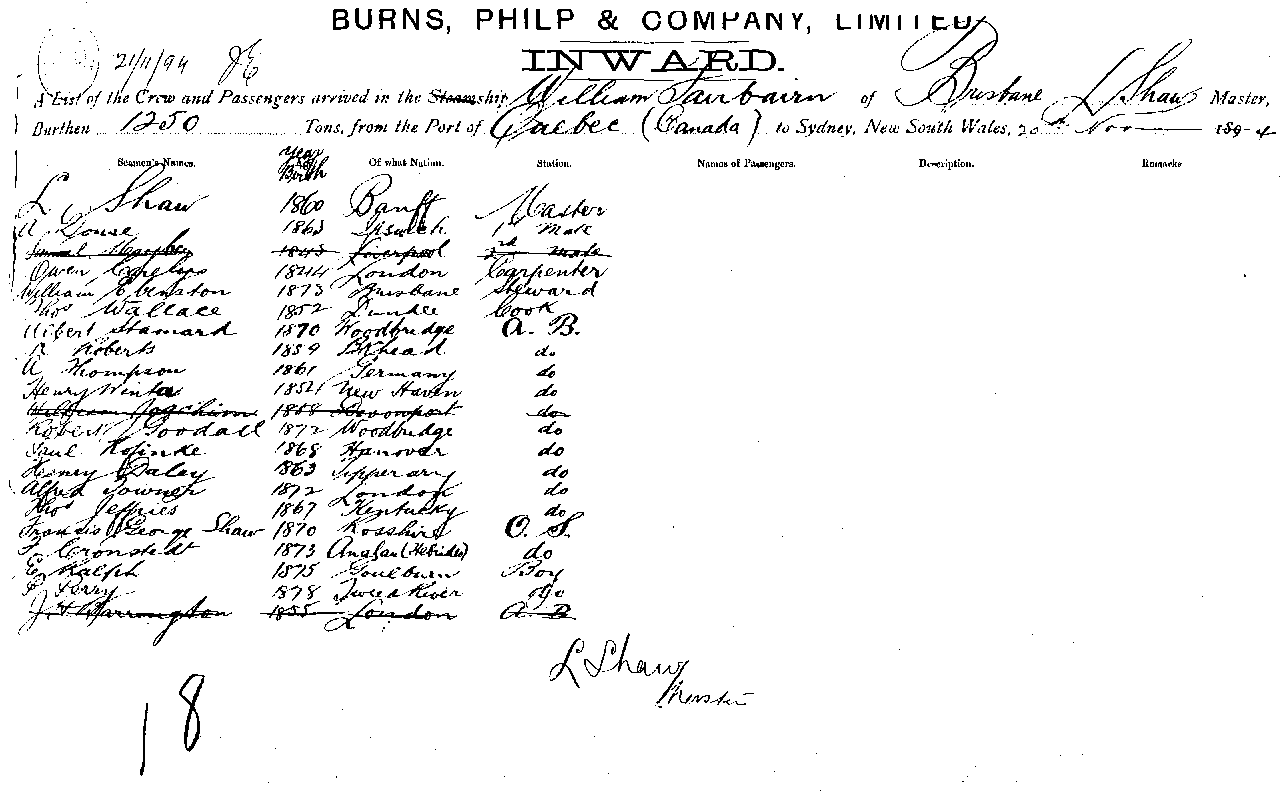 BURNS, PHILP & COMPANY, LIMITED
INWARD.
21/11/94
A List of the Crew and Passengers arrived in the Steamship William Fairbairn of Brisbane L Shaw Master,
Burthen 1250 Tons, from the Port of Quebec (Canada) to Sydney, New South Wales, 20th Nov 1894
Seamen's Names. Year Birth Of what Nation. Station. Names of Passengers. Description. Remarks
L. Shaw 1860 Banff Master
A Douse 1863 Ipswich 1st Mate
Samuel Murphy 1843 Liverpool 2nd Mate
Owen 1844 London Carpenter
William Ebenston 1873 Brisbane Steward
Thos Wallace 1852 Dundee Cook
Albert Stamard 1870 Woodbridge A. B.
R Roberts 1859 B'Khead do
A Thompson 1861 Germany do
Henry Winter 1854 New Haven do
William Joachim 1858 Devonport do
Robert Goodall 1872 Woodbridge do
Paul 1868 Hanover do
Henry Daley 1863 Tipperary do
Alfred Towner 1872 London do
Thos Jeffries 1867 Kentucky do
Francis George Shaw 1870 Rosshire O. S.
F Cronstedt 1873 (Hebrides) do
E Ralph 1875 Goulburn Boy
P Perry 1878 Tweed River do
J H Warrington 1855 London A B
L Shaw
Master
18